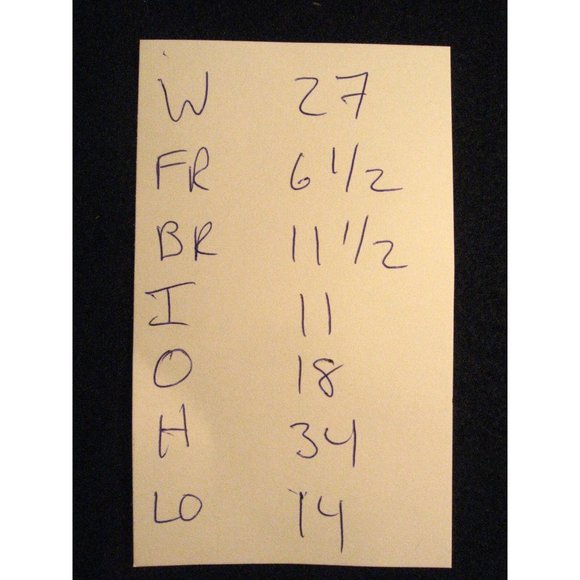 W 27
FR 6 1/2
BR 11 1/2
I 11
O 18
H 34
LO 14